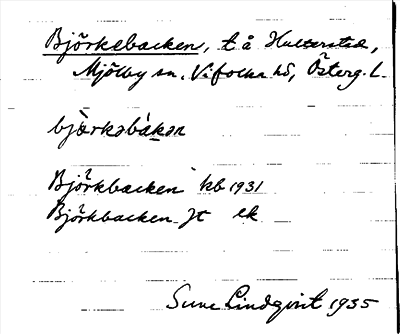 Björkebacken, t å Hulterstad,
Mjölby sn, Vifolka hd, Österg. L.
bjærkabàkan
Björkbacken kb 1931
Björkbacken Jt ek
Sune Lindqvist 1935